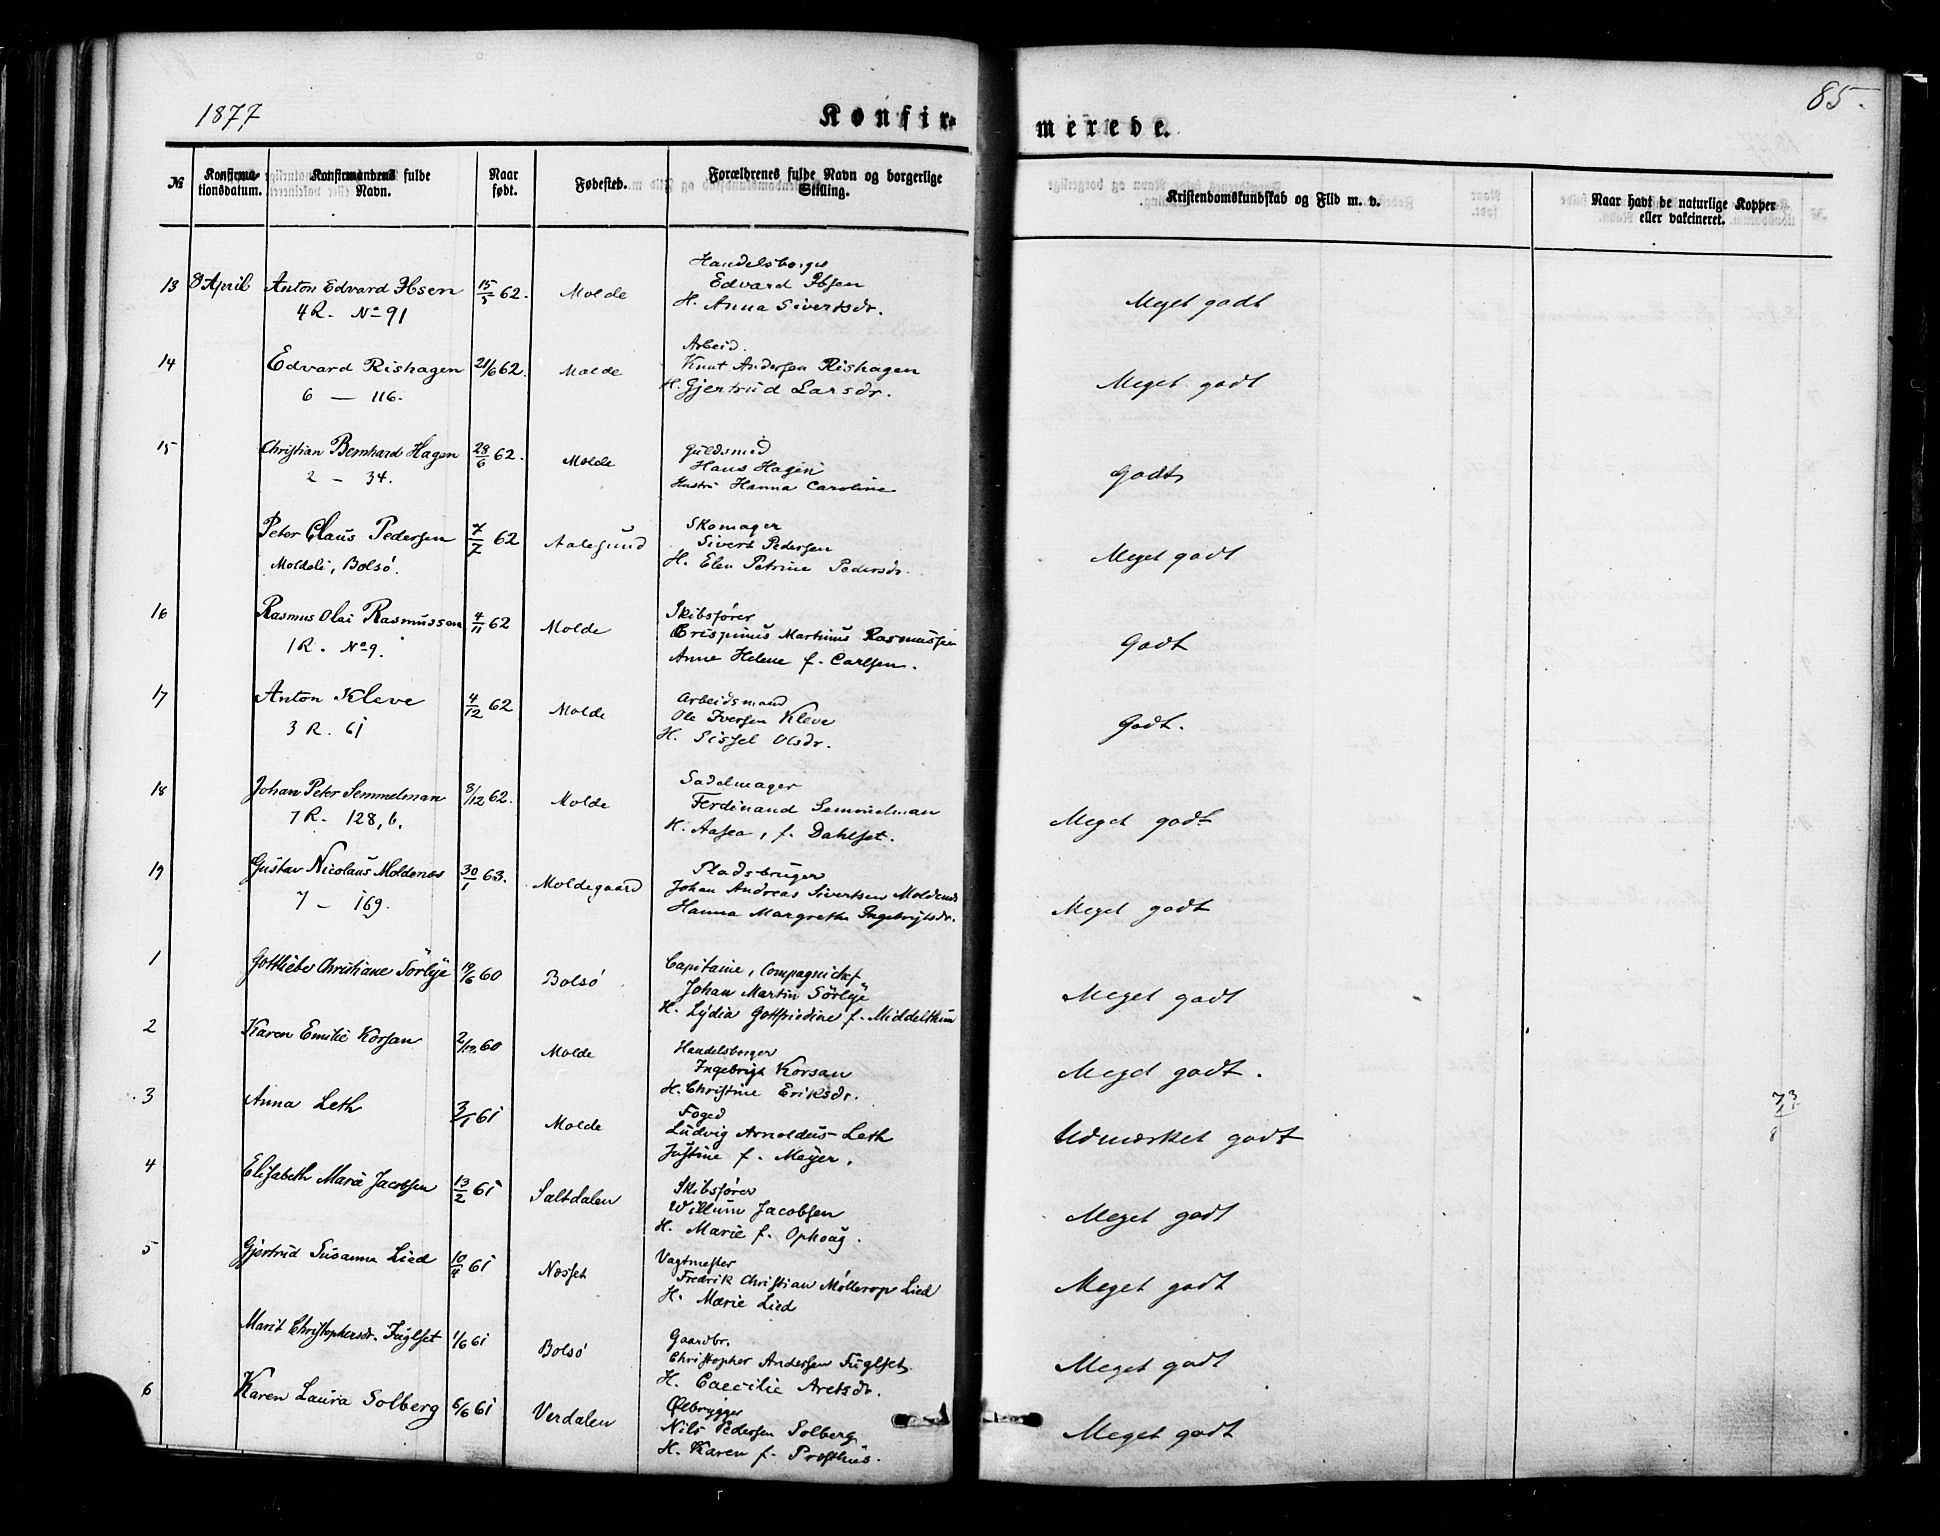 1877
Konfir-
merede.
85.
№
Konfirma-
tionsdatum.
Konfirmandens fulde
Navn.
Naar
født.
Fødested.
Forældrenes fulde Navn og borgerlige
Stilling.
Kristendomskundskab og Flid m. v.
Naar havt de naturlige Kopper
eller vakcineret.
13 8 April Anton Edvard Ibsen 15/5 62. Molde Handelsborger
Edvard Ibsen
H. Anna Sivertsdr. Meget godt
4 R. No 91
14 Edvard Rishagen 21/6 62. Molde Arbeid.
Knut Andersen Rishagen
H. Gjertrud Larsdr. Meget godt
6 — 116.
15 Christian Bernhard Hagen 28/6 62. Molde Guldsmed
Hans Hagen
Hustru Hanna Caroline Godt
2 — 34.
Peter Claus Pedersen 7/7 62 Aalesund Skomager
Sivert Pedersen
H. Elen Petrine Pedersdr. Meget godt
Moldeli, Bolsø.
16 Rasmus Olai Rasmussen 4/11 62 Molde Skibsfører
Crispinus Martinus Rasmussen
Anne Helene f. Carlsen. Godt
1 R. No 9.
17 Anton Kleve 4/12 62 Molde Arbeidsmand
Ole Iversen Kleve
H. Sissel Olsdr. Godt.
3 R. 61
18 Johan Peter Semmelman 8/12 62. Molde Sadelmager
Ferdinand Semmelman
H. Aasea, f. Dahlset. Meget godt
7 R. 128, b.
19 Gustav Nicolaus Moldenæs 30/1 63. Moldegaard Pladsbruger
Johan Andreas Sivertsen Moldenæs
Hanna Margrethe Ingebrigtsdr. Meget godt
7 — 169.
1 Gottliebe Christiane Sørlye 19/6 60 Bolsø Capitaine, Compagnichef
Johan Martin Sørlye
H. Lydia Gottfriedine f. Middelthun Meget godt
2 Karen Emilie Korsan 2/12 60 Molde Handelsborger
Ingebrigt Korsan
H. Christine Eriksdr. Meget godt.
3 Anna Leth 3/1 61 Molde Foged
Ludvig Arnoldus Leth
Justine f. Meyer. Udmærket godt
4 Elisabeth Marie Jacobsen 13/2 61 Saltdalen Skibsfører
Willum Jacobsen
H. Marie f. Ophoug. Meget godt
5 Gjertrud Susanna Lied 10/4 61 Nesset Vagtmester
Fredrik Christian Møllerop Lied
H. Marie Lied Meget godt
Marit Christophersdr. Fuglset 1/6 61 Bolsø Gaardbr.
Christopher Andersen Fuglset
H. Caecilie Aretsdr. Meget godt
6 Karen Laura Solberg 6/6 61 Verdalen Ølbrygger
Nils Pedersen Solberg
H. Karen f. Præsthus. Meget godt